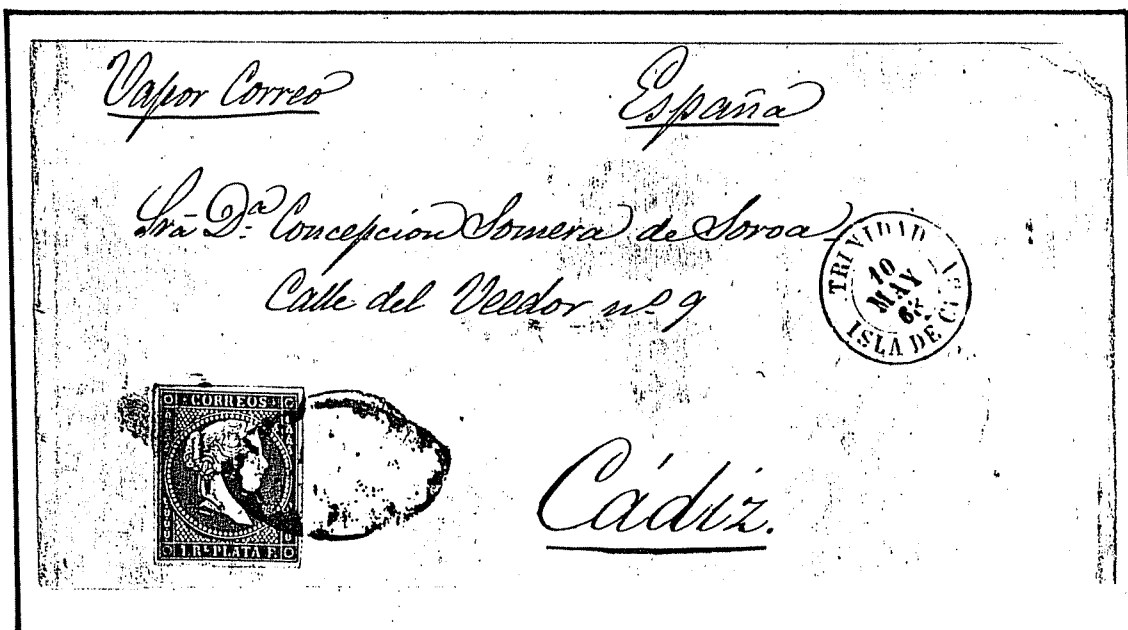 Vapor Correo España
Sra Da. Concepcion Somera de Soroa
Calle del Veedor no. 9
TRINIDAD
10
MAY
ISLA DE
CORREOS
1 Rl. PLATA F.
Cádiz.